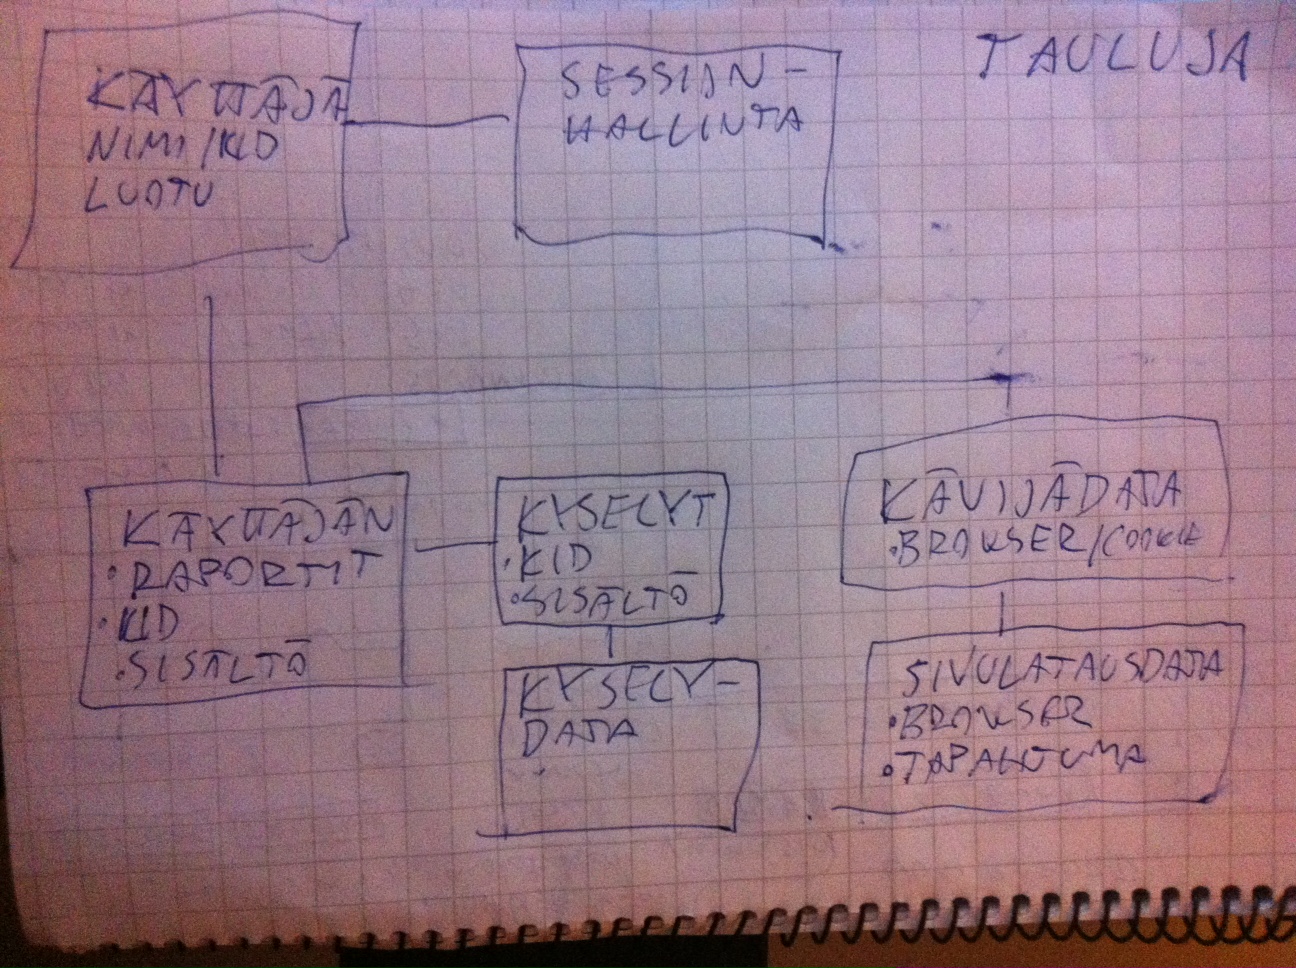 TAULUJA
KÄYTTÄJÄ
NIMI/KLD
LUOTU
SESSION-
HALLINTA
KÄYTTÄJÄN
• RAPORTIT
• KID
• SISÄLTÖ
KYSELYT
• KID
• SISÄLTÖ
KYSELY-
DATA
KÄVIJÄDATA
• BROWSER/COOKIE
SIVULATAUSDATA
• BROWSER
• TAPAHTUMA